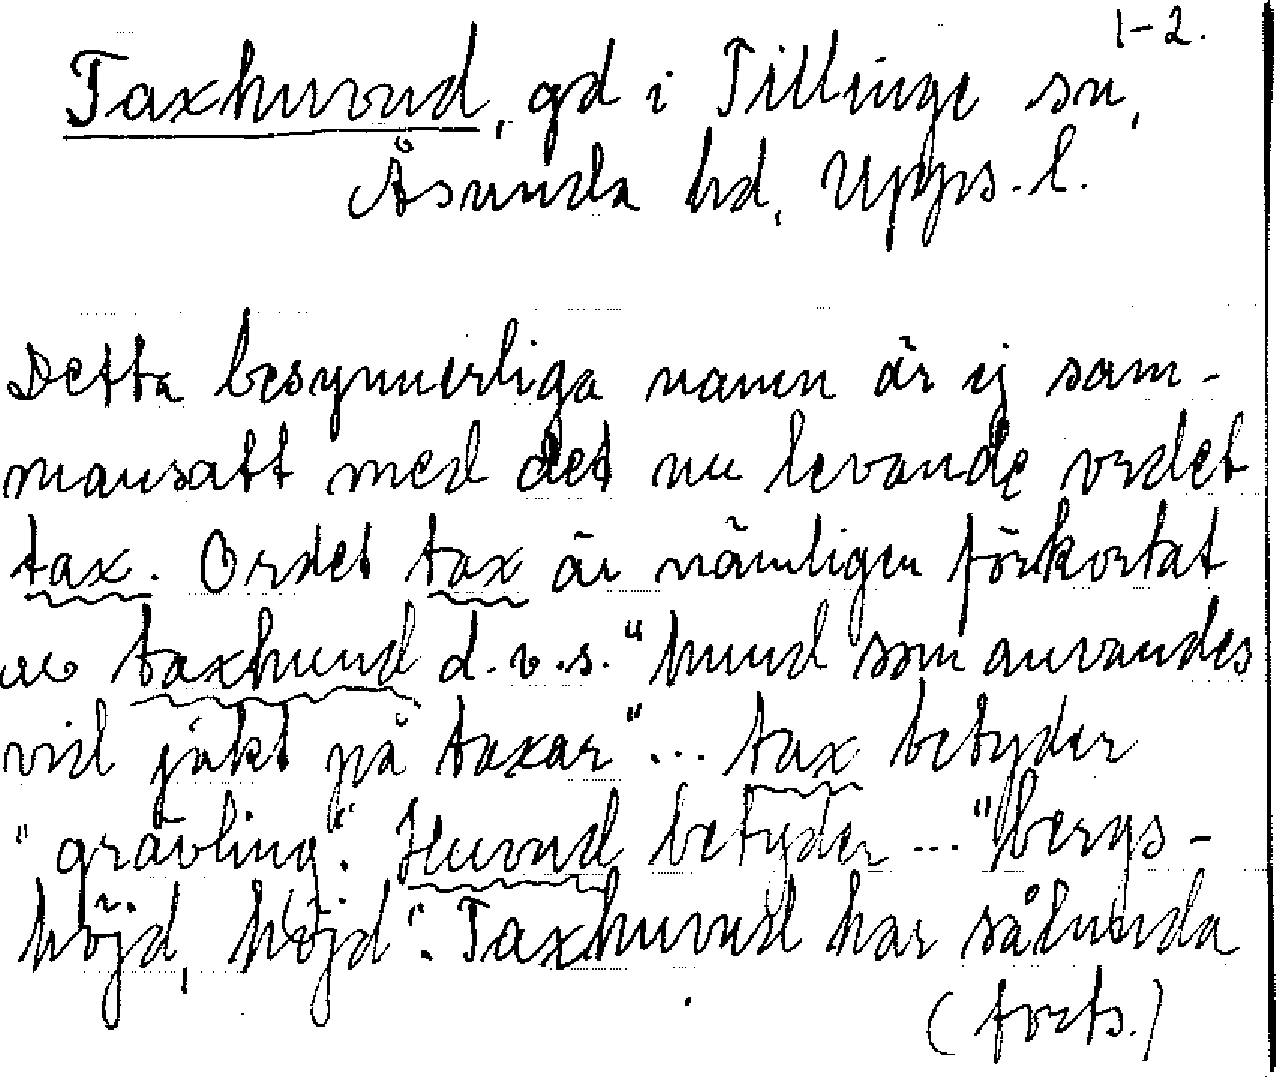 1-2.
Taxhuvud, gd i Tillinge sn,
Åsunda hd, Upps. l.
Detta besynnerliga namn är ej sam-
mansatt med det nu levande ordet
tax. Ordet tax är nämligen förkortat
av taxhund d.v.s. "hund som användes
vid jakt på taxar"... tax betyder
"grävling". Huvud betyder ... "bergs-
höjd, höjd". Taxhuvud har sålunda
(forts.)